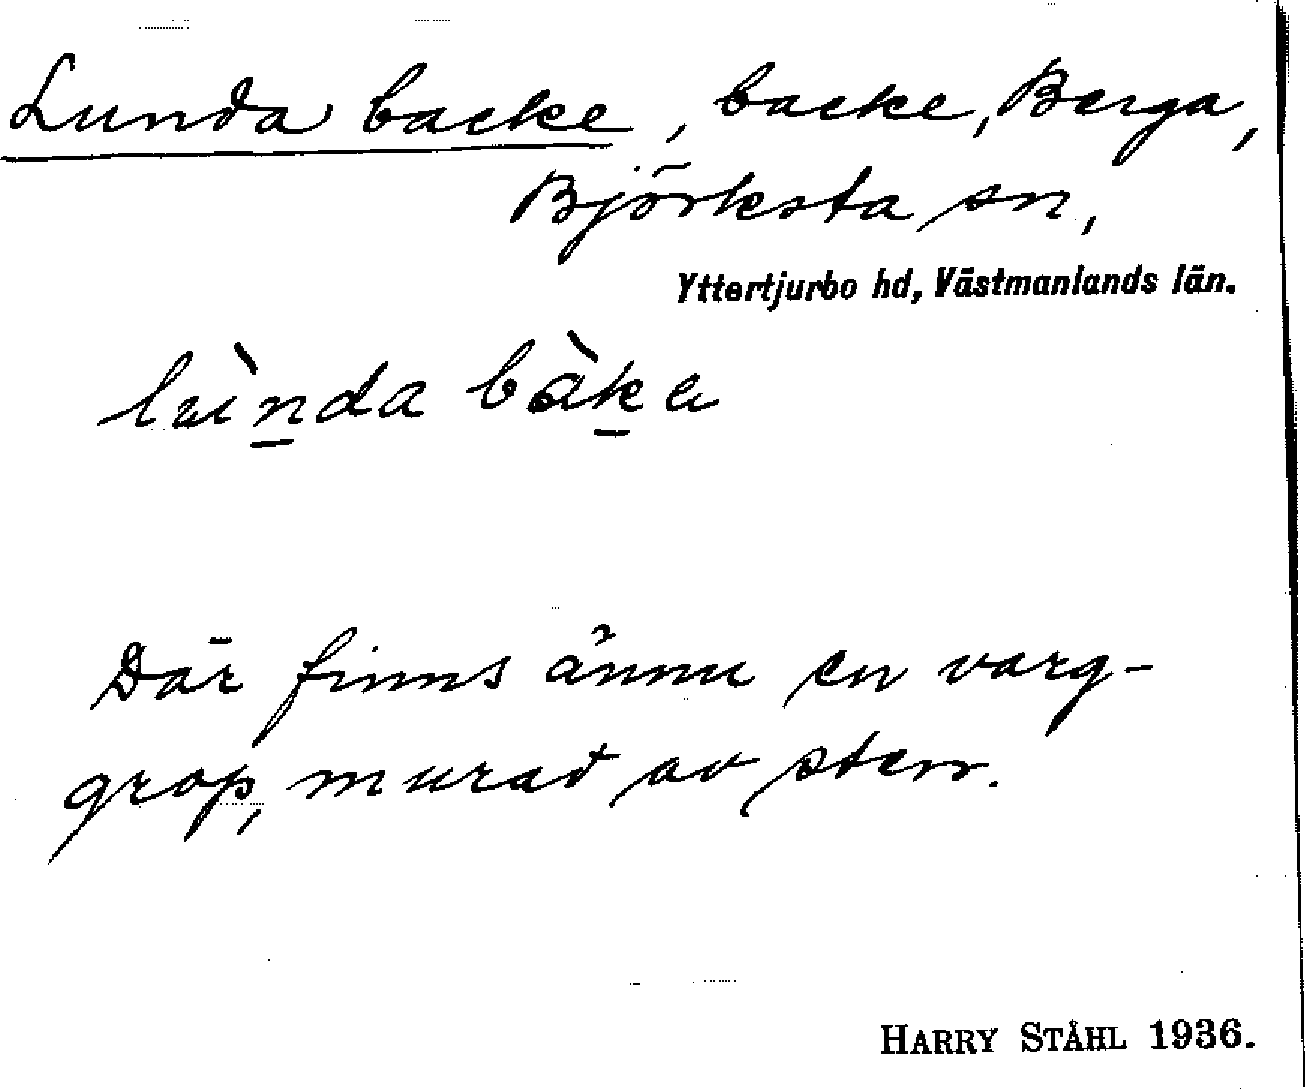 Lunda backe, backe, Berga,
Björksta sn,
Yttertjurbo hd, Västmanlands län.
lùnda bàkɐ
Där finns ännu en varg-
grop, murad av sten.
HARRY STÅHL 1936.